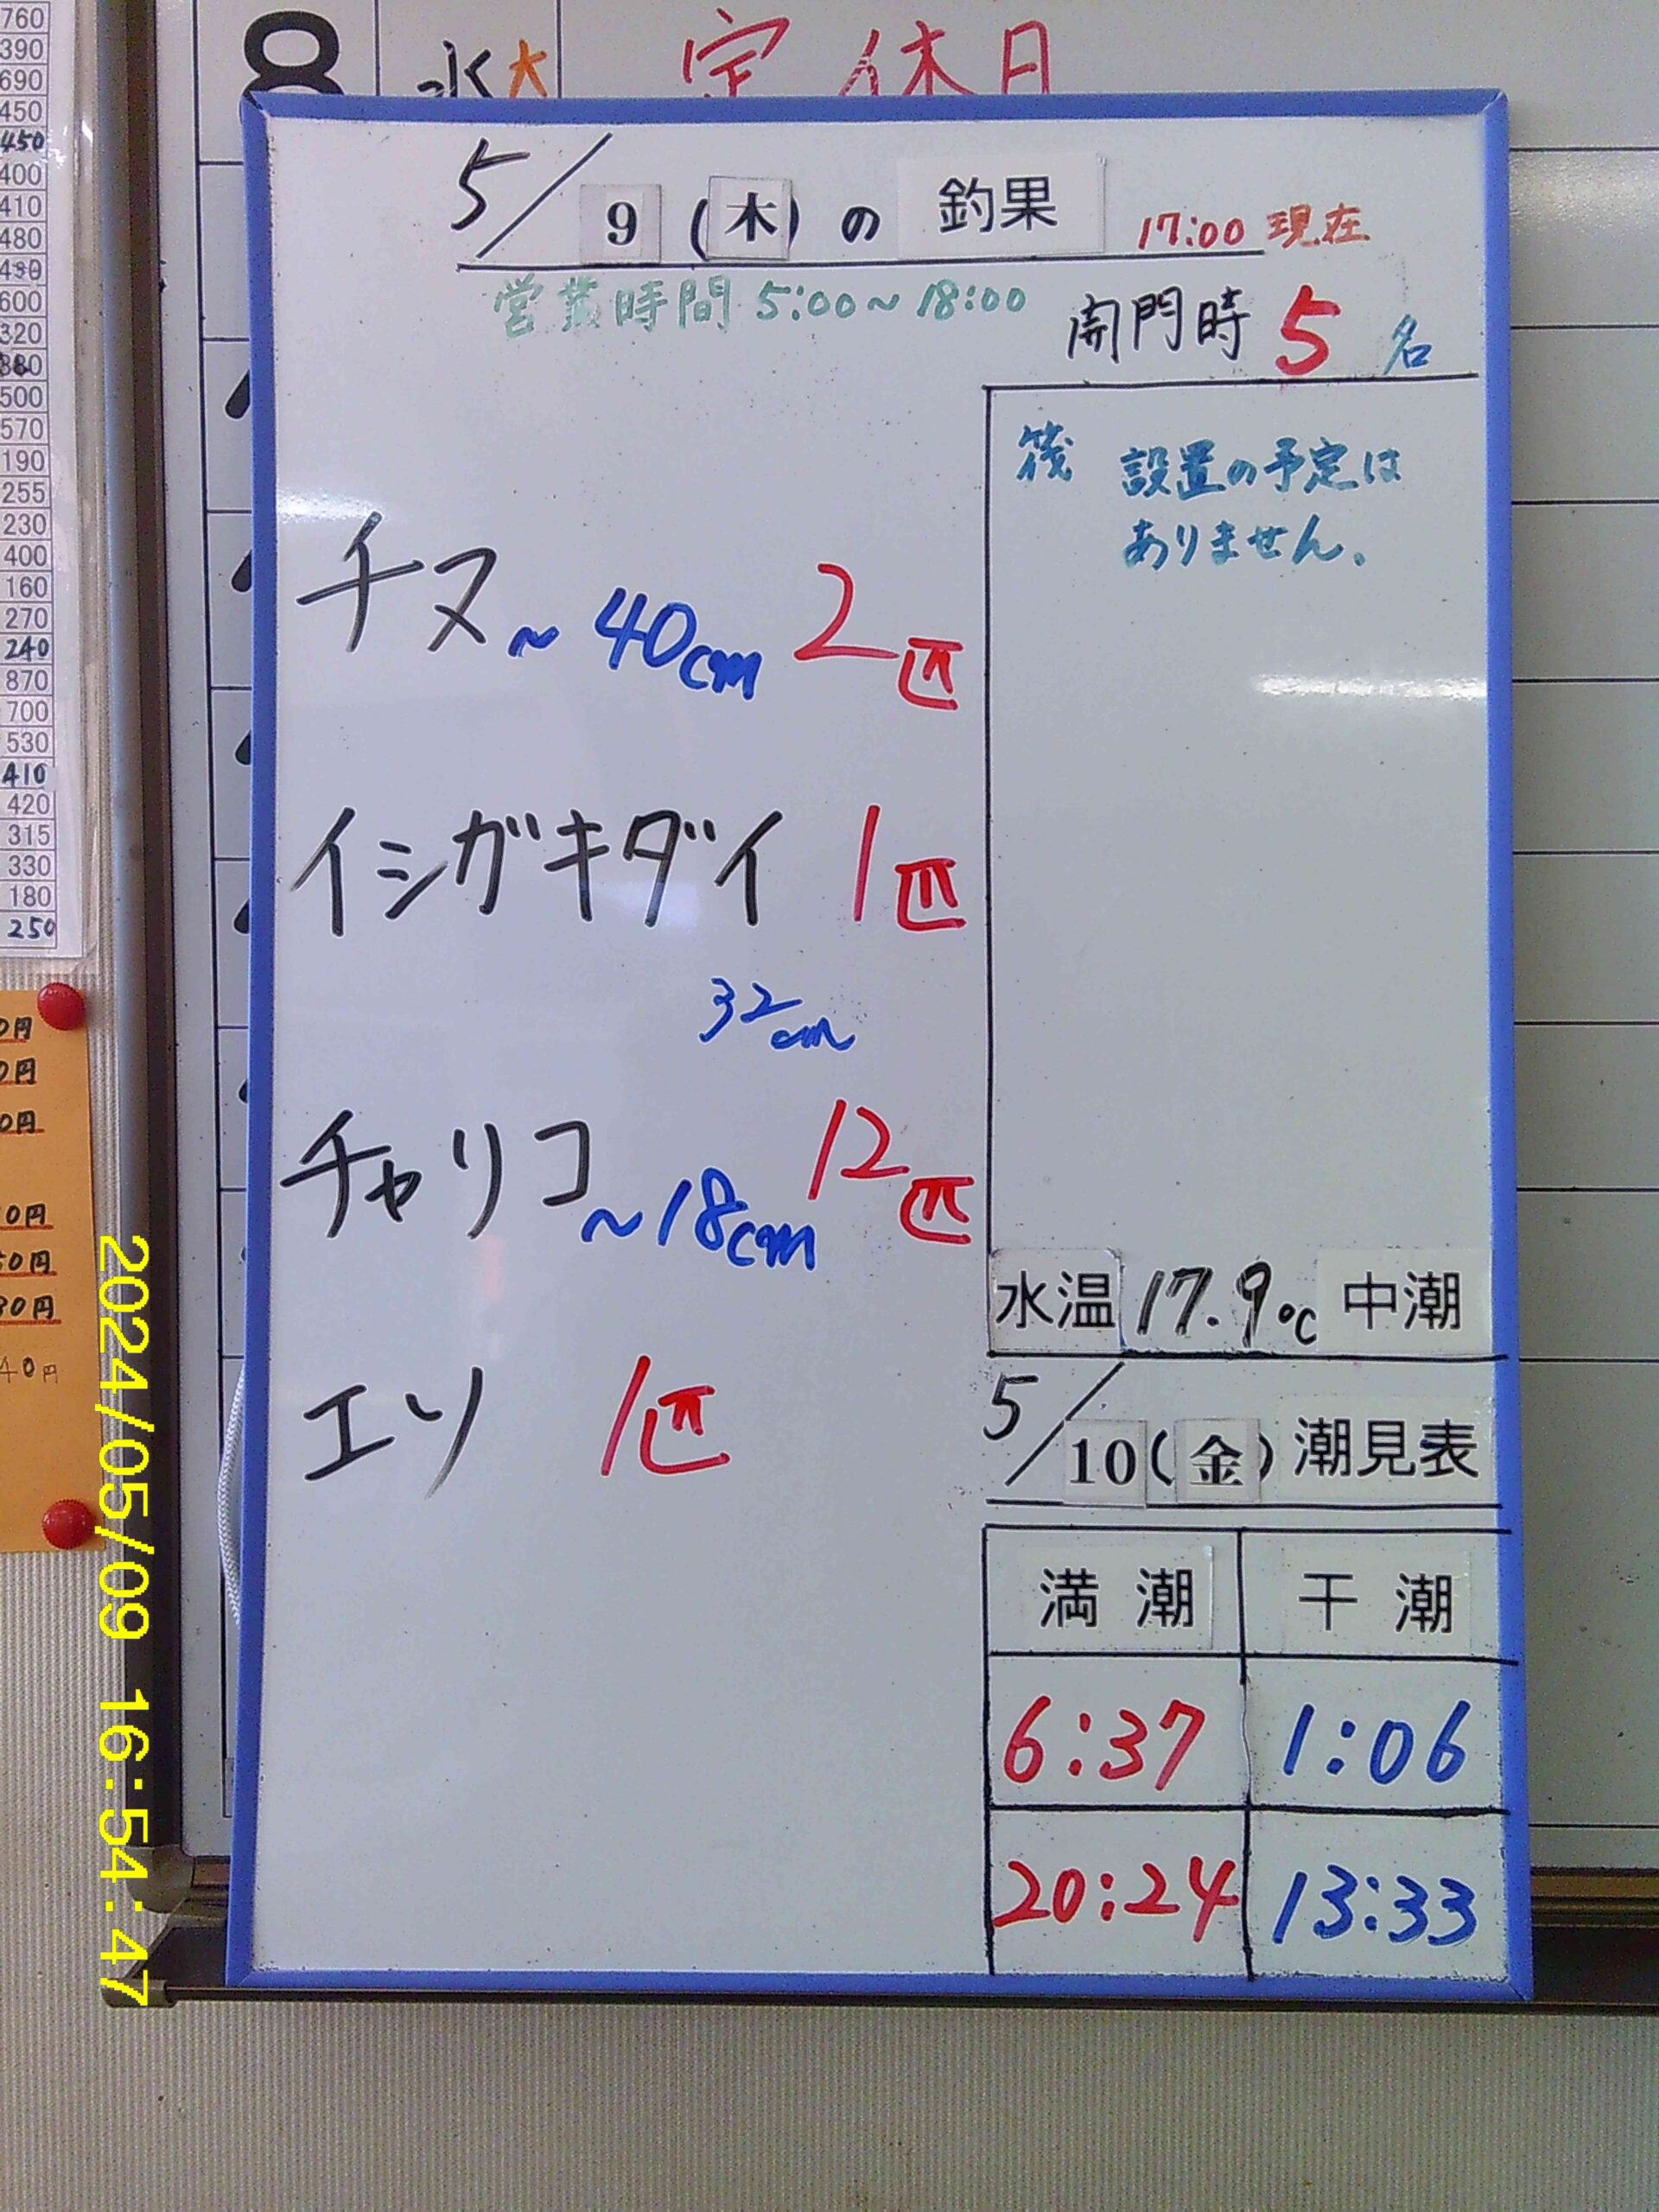 760
390
690
450
450
400
410
480
430
600
320
380
500
570
190
255
230
400
160
270
240
870
700
530
410
420
315
330
180
250
0円
0円
0円
10円
50円
30円
40円
8 水 大 定休日
5/9(木)の釣果 17:00 現在
営業時間 5:00~18:00
開門時 5 名
筏 設置の予定は
ありません。
チヌ~40cm 2匹
イシガキダイ 1匹
32cm
チャリコ~18cm 12匹
エソ 1匹
水温 17.9℃ 中潮
5/10(金)潮見表
満潮 干潮
6:37 1:06
20:24 13:33
2024/05/09 16:54:47